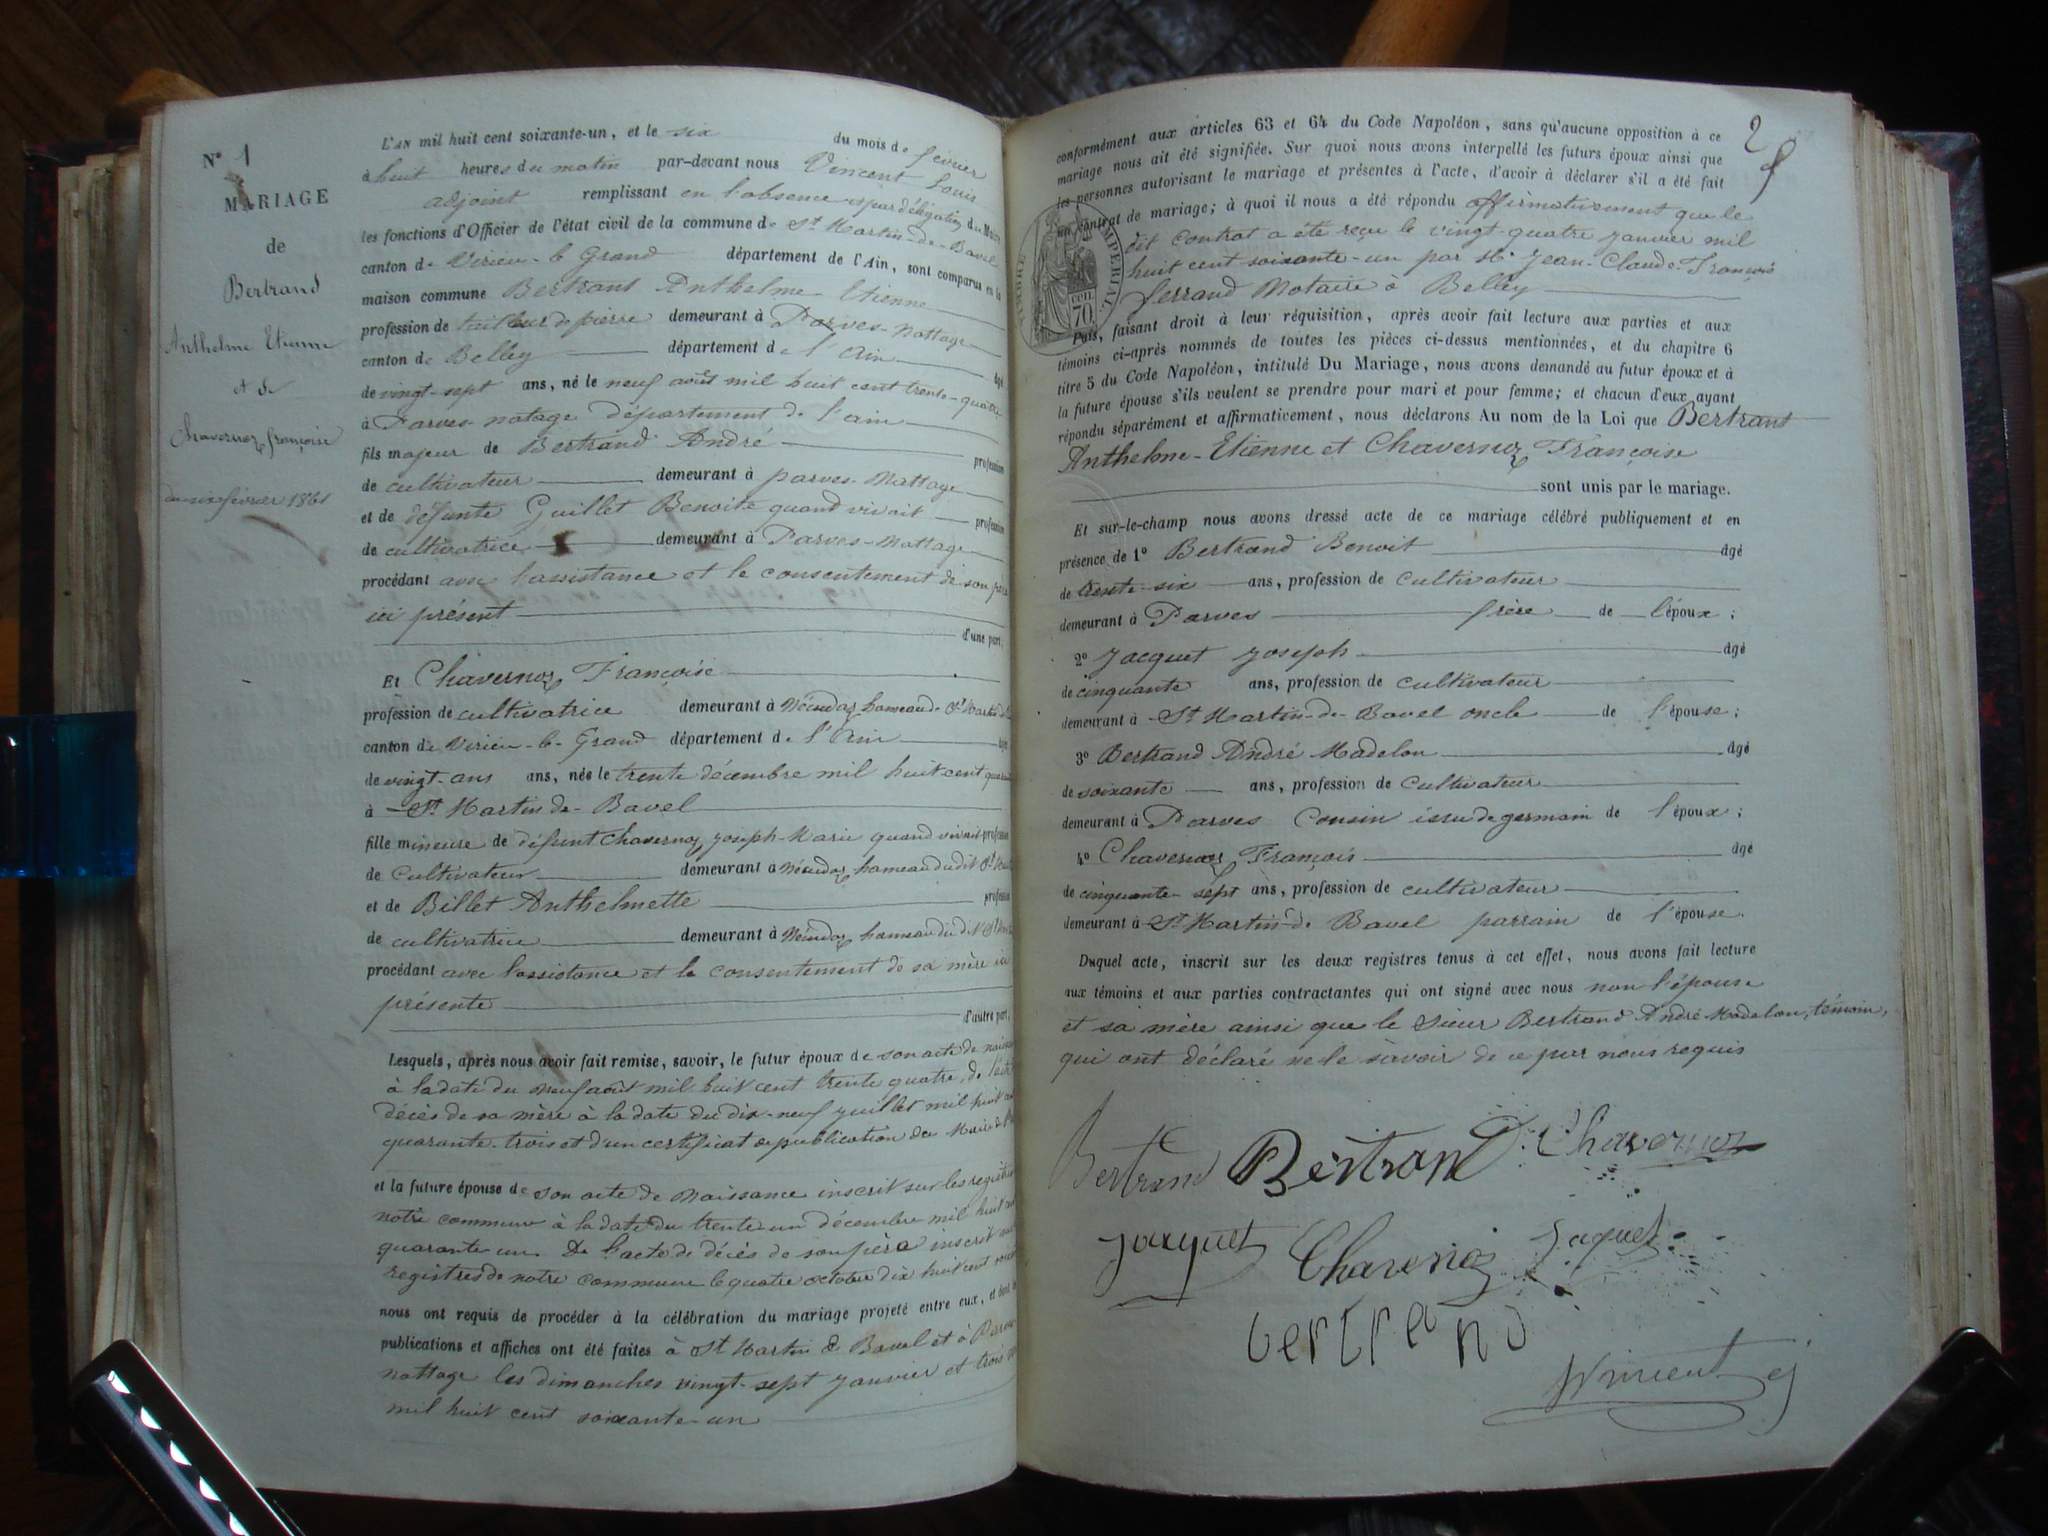 N° 1
MARIAGE
de
Bertrand
Anthelme Etienne
et de
Chavernoz françoise
du six février 1861
L'AN mil huit cent soixante-un, et le six du mois de février
à huit heures du matin par-devant nous Vincent Louis
adjoint remplissant en l'absence et par délégation du Maire
les fonctions d'Officier de l'état civil de la commune de St Martin-de-Bavel
canton de Virieu-le Grand département de l'Ain, sont comparus en la
maison commune Bertrand Anthelme Etienne
profession de tailleur de pierre demeurant à Parves-Nattage
canton de Belley département de l'Ain âgé
de vingt-sept ans, né le neuf août mil huit cent trente-quatre
à Parves-natage département de l'ain
fils majeur de Bertrand André profession
de cultivateur demeurant à parves-Nattage
et de défunte Guillet Benoite quand vivait profession
de cultivatrice demeurant à Parves-Nattage
procédant avec l'assistance et le consentement de son père
ici présent
d'une part;
Et Chavernoz Françoise
profession de cultivatrice demeurant à hameau de St Martin
canton de Virieu-le-Grand département de l'Ain
de vingt-ans ans, née le trente décembre mil huit cent
à St Martin de-Bavel
fille mineure de défunt Chavernoz joseph-Marie quand vivait profession
de Cultivateur demeurant à hameau dudit St
et de Billet Anthelmette profession
de cultivatrice demeurant à hameau du dit St
procédant avec l'assistance et le consentement de sa mère ici
présente
d'autre part;
Lesquels, après nous avoir fait remise, savoir, le futur époux de son acte de
à la date du neuf août mil huit cent trente quatre, de
décès de sa mère à la date du dix-neuf juillet mil huit
quarante-trois et d'un certificat de publication du Maire de
et la future épouse de son acte de Naissance inscrit sur les
notre commune à la date du trente-un décembre mil huit
quarante un. De l'acte de décès de son père inscrit
registres de notre commune le quatre octobre dix huit cent
nous ont requis de procéder à la célébration du mariage projeté entre eux, et dont
publications et affiches ont été faites à St Martin de Bavel et à Parves
nattage les dimanches vingt-sept janvier et trois
mil huit cent soixante-un
2
conformément aux articles 63 et 64 du Code Napoléon, sans qu'aucune opposition à ce
mariage nous ait été signifiée. Sur quoi nous avons interpellé les futurs époux ainsi que
les personnes autorisant le mariage et présentes à l'acte, d'avoir à déclarer s'il a été fait
un contrat de mariage; à quoi il nous a été répondu affirmativement que le
dit contrat a été reçu le vingt-quatre janvier mil
huit cent soixante-un par Me Jean-Claude-François
ferrand Notaire à Belley
TIMBRE IMPÉRIAL
70
Puis, faisant droit à leur réquisition, après avoir fait lecture aux parties et aux
témoins ci-après nommés de toutes les pièces ci-dessus mentionnées, et du chapitre 6
titre 5 du Code Napoléon, intitulé Du Mariage, nous avons demandé au futur époux et à
la future épouse s'ils veulent se prendre pour mari et pour femme; et chacun d'eux ayant
répondu séparément et affirmativement, nous déclarons Au nom de la Loi que Bertrand
Anthelme-Etienne et Chavernoz Françoise
sont unis par le mariage.
Et sur-le-champ nous avons dressé acte de ce mariage célébré publiquement et en
présence de 1° Bertrand Benoit âgé
de trente-six ans, profession de cultivateur
demeurant à Parves frère de l'époux;
2° Jacquet joseph âgé
de cinquante ans, profession de cultivateur
demeurant à St Martin-de-Bavel oncle de l'épouse;
3° Bertrand André Madelon âgé
de soixante ans, profession de cultivateur
demeurant à Parves Cousin issu de germain de l'époux;
4° Chavernoz François âgé
de cinquante-sept ans, profession de cultivateur
demeurant à St Martin-de Bavel parrain de l'épouse.
Duquel acte, inscrit sur les deux registres tenus à cet effet, nous avons fait lecture
aux témoins et aux parties contractantes qui ont signé avec nous non l'épouse
et sa mère ainsi que le Sieur Bertrand André Madelon, témoin,
qui ont déclaré ne le savoir de ce par nous requis
Bertrand Bertrand Chavernoz
jacquet Chavernoz Jaquet
bertrand
Vincent